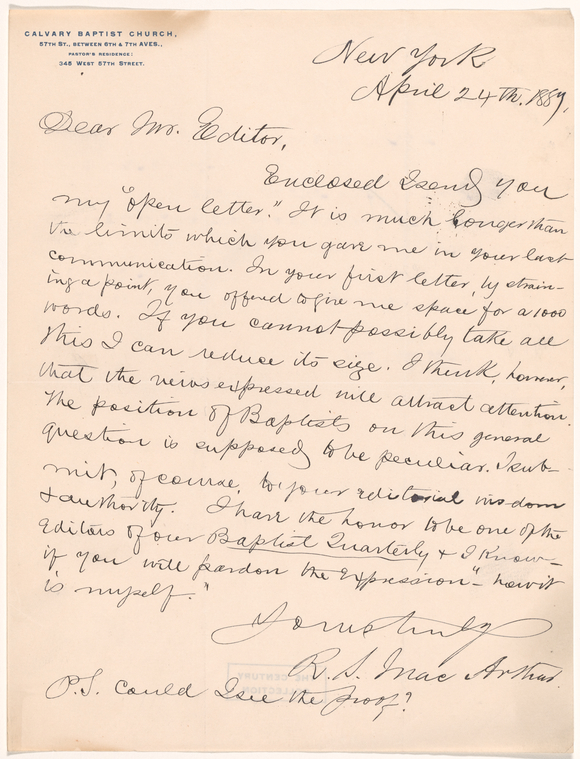 CALVARY BAPTIST CHURCH,
57TH ST., BETWEEN 6TH & 7TH AVES.,
PASTOR'S RESIDENCE:
348 WEST 57TH STREET.
New York
April 24th. 1889.
Dear Mr. Editor,
Enclosed I send you
my "open letter." It is much longer than
the limits which you gave me in your last
communication. In your first letter, by strain-
ing a point, you offered to give me space for a 1000
words. If you cannot possibly take all
this I can reduce its size. I think, however,
that the views expressed will attract attention.
The position of Baptists on this general
question is supposed to be peculiar. I sub-
mit, of course, to your editorial wisdom
& authority. I have the honor to be one of the
Editors of our Baptist Quarterly & I know—
if you will pardon the expression—"how it
is myself."
Yours truly
R. S. Mac Arthur.
P.S. Could I see the proof?
THE CENTURY
COLLECTION